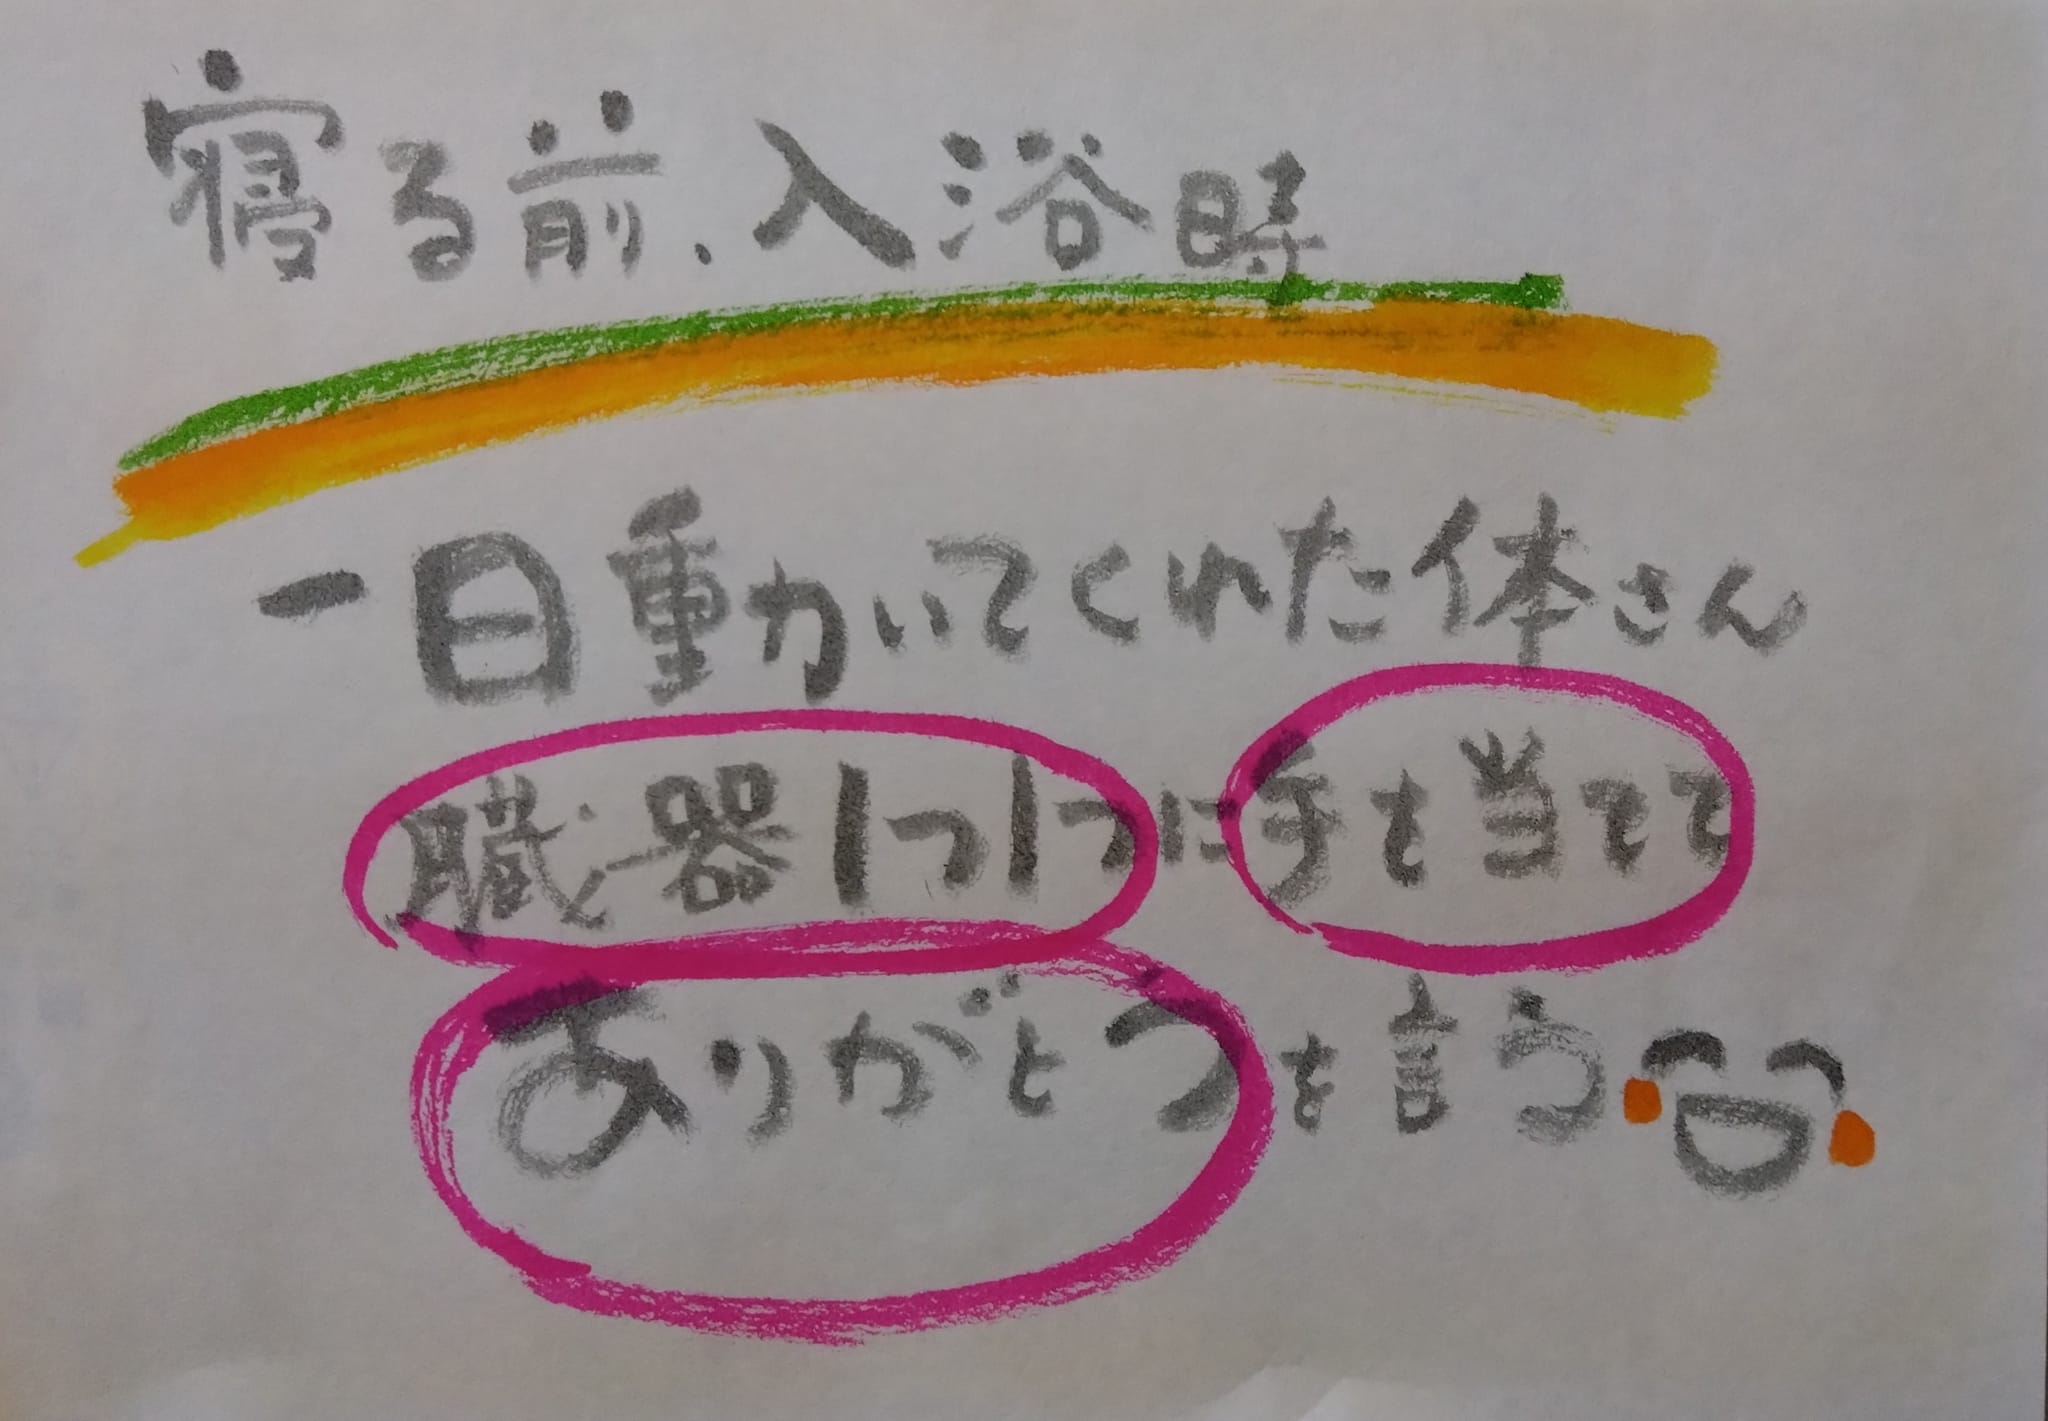 寝る前、入浴時
一日動いてくれた体さん
臓器1つ1つに手を当てて
ありがとうを言う